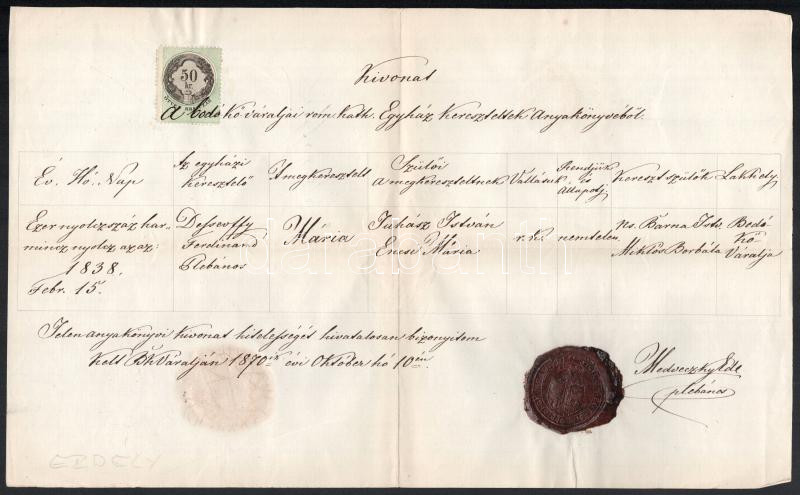 Kivonat
50
kr.
A bodókőváraljai róm. kath. Egyház Kereszteltek Anyakönyvéből.
Év. Hó. Nap
Az egyházi keresztelő
A megkeresztelt
Szülői a megkereszteltnek
Vallásuk
Rendjük és Állapotj.
Kereszt szülők
Lakhely
Ezer nyolczszáz har-
mincz nyolcz azaz:
1838.
Febr. 15.
Dessewffy
Ferdinand
Plebános
Mária
Juhász István
Encsi Mária
r. k.
nemtelen
ns. Barna Istv.
Miklós Borbála
Bodó
kő
Váralja
Jelen anyakönyvi kivonat hitelességét hivatalosan bizonyitem
Kelt B.k.Váralján 1870ik évi Oktober hó 10én.
Medveczky Ede
plébános
ERDÉLY